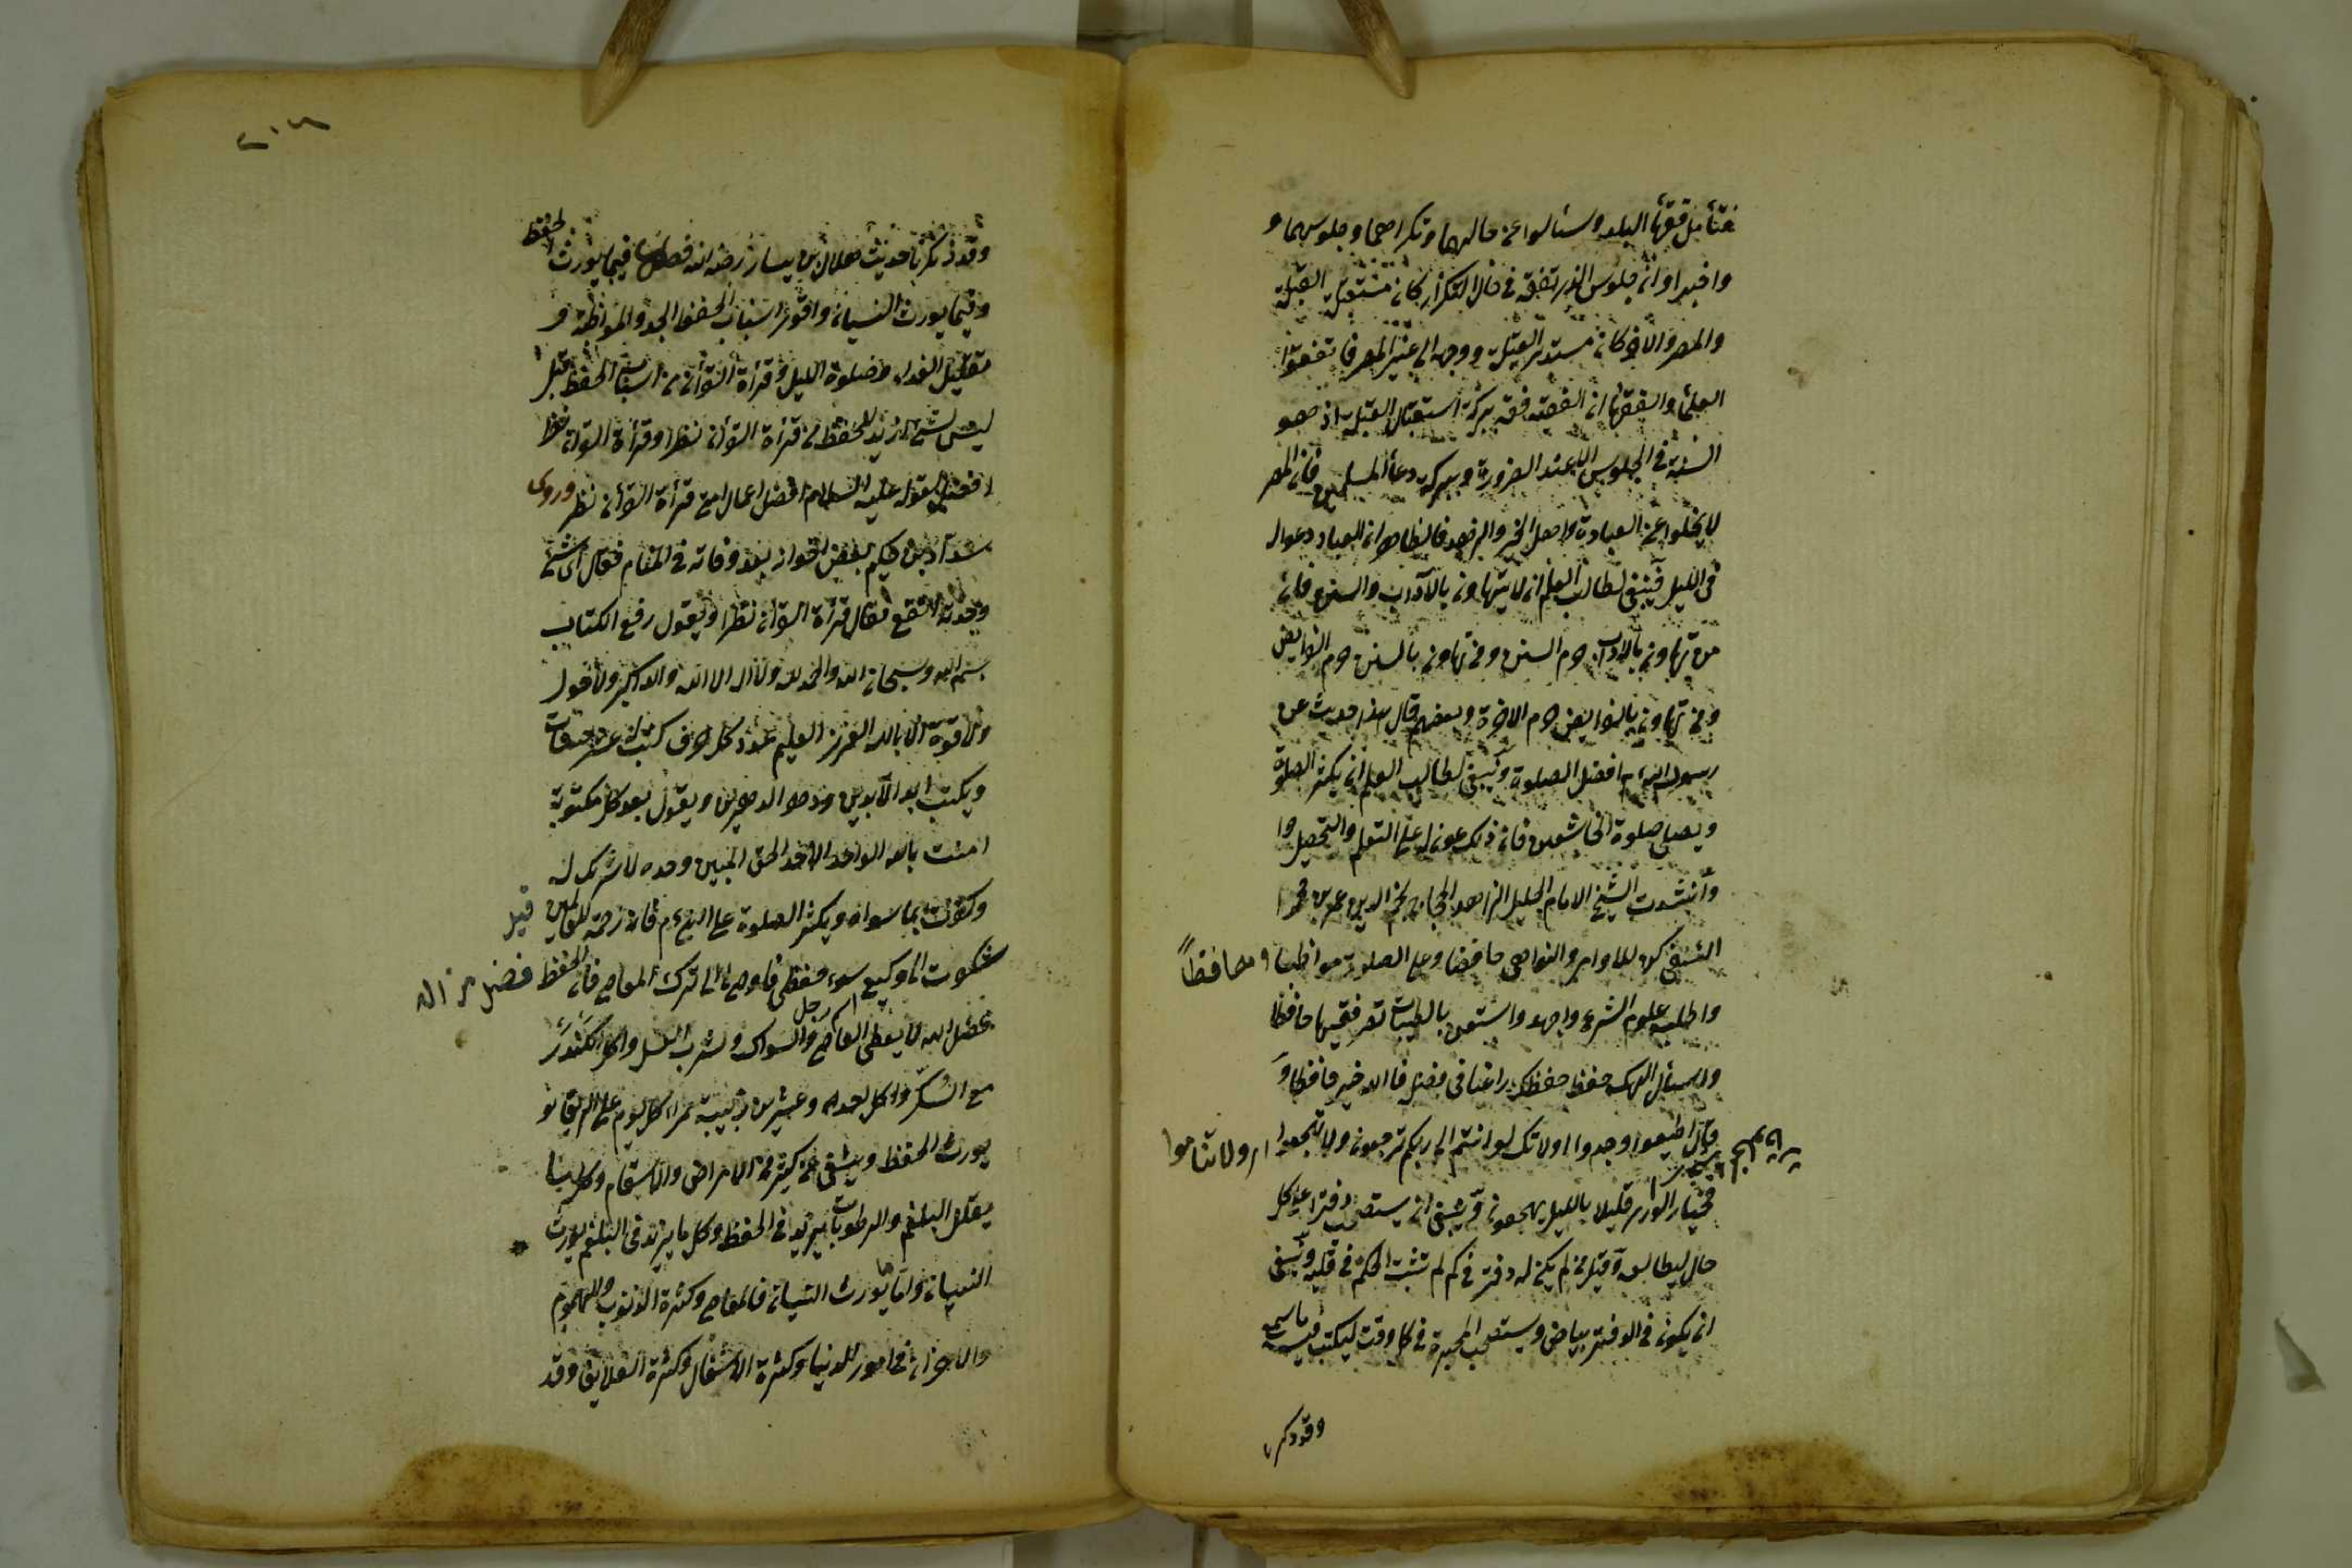 فتأمل فقهاء البلد وسئالوا عن حالهما وتكرارهما وجلوسهما و
واخبروا ان جلوس الذى تفقه فى حال التكرار كان مستقبل القبلة
والمصر والاخر كان مستدبر القبلة ووجه الى غير المصر فاتفقوا
العلماء والفقهاء ان الفقيه فقه ببركة استقبال القبلة اذ هو
السنة فى الجلوس الا عند الضرورة وببركة دعاء المسلمين فان المصر
لا يخلوا عن العباد واهل الخير والزهد فالظاهر ان العباد دعوا له
فى الليل فينبغى لطالب العلم ان لا يتهاون بالآداب والسنن فان
من تهاون بالادب حرم السنن ومن تهاون بالسنن حرم الفرايض
ومن تهاون بالفرايض حرم الاخرة وبعضهم قال هذا حديث عن
رسول الله افضل الصلوة وينبغى لطالب العلم ان يكثر الصلوة
ويصلى صلوة الخاشعين فان ذلك عون له على التعلم والتحصيل وا
وانشدت الشيخ الامام الجليل الزاهد الحجاج نجم الدين عمر بن محمد ا
النسفى كن للاوامر والنواهى حافظا وعلى الصلوة مواظبا ومحافظاً
واطلب علوم الشرع واجهد واستعن بالطيبات تصر فقيها حافظا
واسئال الهك حفظ حفظك راغبا فى فضله فالله خير حافظا وَ
وقال اطيعوا وجدوا ولا تكسلوا انتم الى ربكم ترجعون ولا تهجعوا اى ولا تناموا
فخيار الورى قليلا بالليل يهجعون وينبغى ان يستصحب دفترا على كل
حال ليطالعه وقيل من لم يكن له دفتر فى كمه لم تثبت الحكمة فى قلبه وينبغى
ان يكون فى الدفتر بياض ويستصحب المحبرة فى كل وقت ليكتب فيه ما سمعه
وقد ذكرنا
وقد ذكرنا حديث هلال بن يسار رضى الله فصل فيما يورث الحفظ
وفيما يورث النسيان واقوى اسباب الحفظ الجد والمواظبة و
تقليل الغداء وصلوة الليل وقرأة القرآن من اسباب الحفظ قيل
ليس شئ ازيد للحفظ من قرأة القرآن نظرا وقرأة القرآن نظرا
افضل لقوله عليه السلام افضل اعمال امتى قرأة القرآن نظرا وروى
شداد بن حكيم بعض اخوانه بعد وفاته فى المنام فقال اى شئ
وجدته انفع فقال قرأة القرآن نظرا ويقول رفع الكتاب
بسم الله وسبحان الله والحمد لله ولا اله الا الله والله اكبر ولا حول
ولا قوة الا بالله العزيز العليم عدد كل حرف كتبت
ويكتب ابد الآبدين ودهر الداهرين ويقول بعد كل مكتوبة
امنت بالله الواحد الاحد الحق المبين وحده لا شريك له
وكفرت بما سواه ويكثر الصلوة على النبى م فانه رحمة للعالمين قيل
شكوت الى وكيع سوء حفظى فاوصانى الى ترك المعاصى فان الحفظ فضل من اله
بفضل الله لا يعطى العاصى والسواك وشرب العسل واكل الكندر
مع السكر واكل احدى وعشرين زبيبة حمراء كل يوم على الريق
يورث الحفظ ويشفى من كثير من الامراض والاسقام وكل ما
يقلل البلغم والرطوبات يزيد فى الحفظ وكل ما يزيد فى البلغم يورث
النسيان واما ما يورث النسيان فالمعاصى وكثرة الذنوب والهموم
والاحزان فى امور الدنيا وكثرة الاشغال وكثرة العلايق وقد